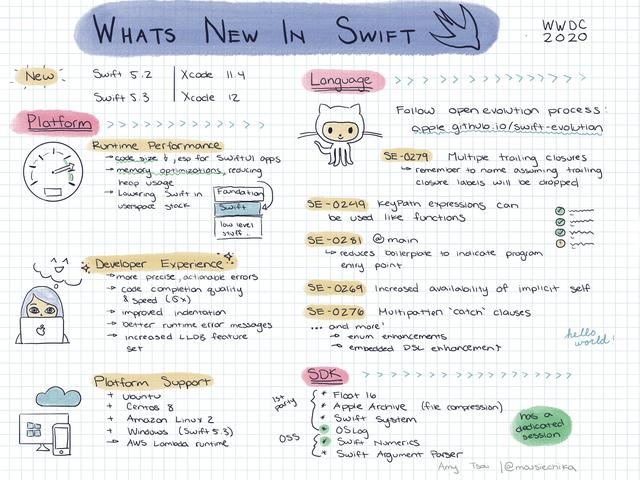 WHATS NEW IN SWIFT
WWDC
2020
New
Swift 5.2
Xcode 11.4
Swift 5.3
Xcode 12
Platform
Runtime Performance
→ code size ↓, esp for SwiftUI apps
→ memory optimizations, reducing
heap usage
→ Lowering Swift in
userspace stack
Foundation
Swift
low level
stuff..
Developer Experience
→ more precise, actionable errors
→ code completion quality
& speed
→ improved indentation
→ better runtime error messages
→ increased LLDB feature
set
Platform Support
+ Ubuntu
+ Centos 8
+ Amazon Linux 2
+ Windows (Swift 5.3)
→ AWS Lambda runtime
Language
Follow open evolution process:
apple.github.io/swift-evolution
SE-0279 Multiple trailing closures
↳ remember to name assuming trailing
closure labels will be dropped
SE-0249 KeyPath expressions can
be used like functions
SE-0281 @main
↳ reduces boilerplate to indicate program
entry point
SE-0269 Increased availability of implicit self
SE-0276 Multipattern 'catch' clauses
... and more!
→ enum enhancements
→ embedded DSL enhancement
hello
world!
SDK
1st
party
* Float 16
* Apple Archive (file compression)
* Swift System
* OSLog
OSS
* Swift Numerics
* Swift Argument Parser
has a
dedicated
session
Amy Tsai | @mousiechika